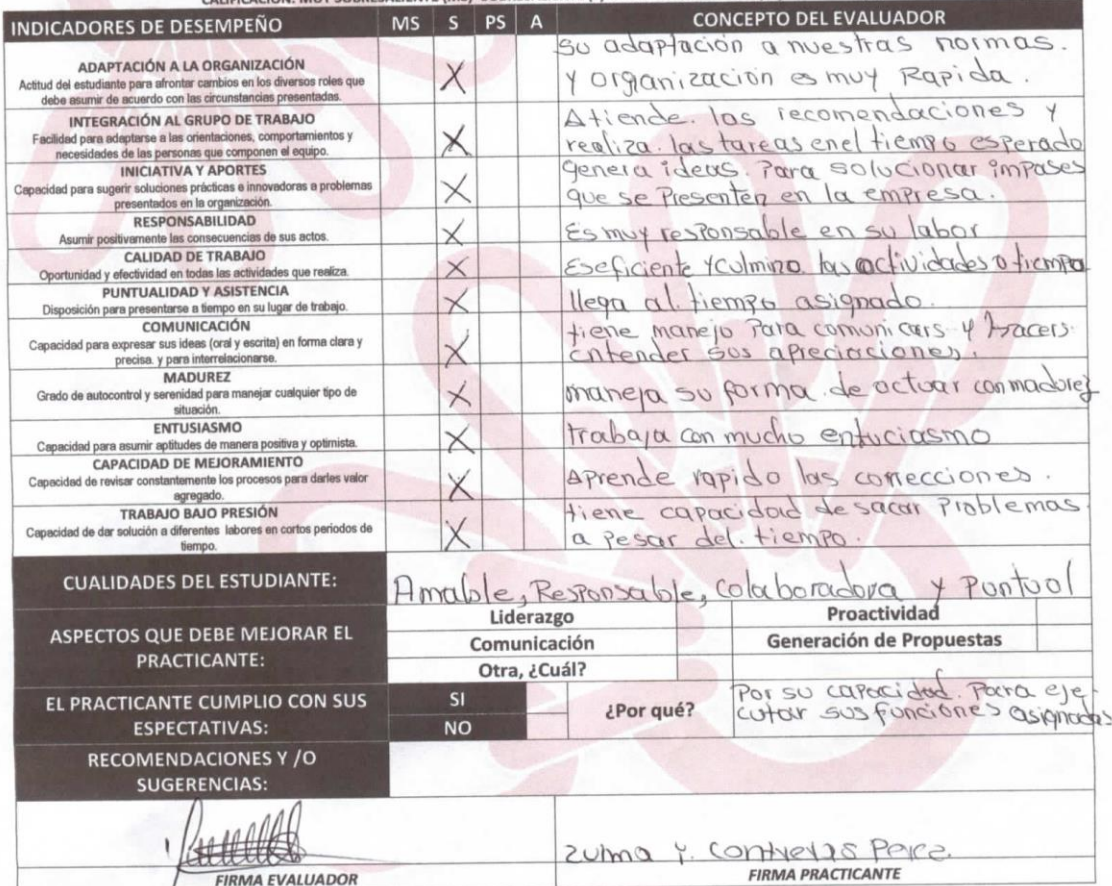 CALIFICACIÓN: MUY SOBRESALIENTE (MS)
INDICADORES DE DESEMPEÑO MS S PS A CONCEPTO DEL EVALUADOR
ADAPTACIÓN A LA ORGANIZACIÓN
Actitud del estudiante para afrontar cambios en los diversos roles que
debe asumir de acuerdo con las circunstancias presentadas.
X
su adaptación a nuestras normas.
y organización es muy Rapida.
INTEGRACIÓN AL GRUPO DE TRABAJO
Facilidad para adaptarse a las orientaciones, comportamientos y
necesidades de las personas que componen el equipo.
X
Atiende. las recomendaciones y
realiza. las tareas en el tiempo esperado
INICIATIVA Y APORTES
Capacidad para sugerir soluciones prácticas e innovadoras a problemas
presentados en la organización.
X
genera ideas. Para solucionar impases
que se Presenten en la empresa.
RESPONSABILIDAD
Asumir positivamente las consecuencias de sus actos.
X
Es muy responsable en su labor
CALIDAD DE TRABAJO
Oportunidad y efectividad en todas las actividades que realiza.
X
Es eficiente y culmina las actividades a tiempo
PUNTUALIDAD Y ASISTENCIA
Disposición para presentarse a tiempo en su lugar de trabajo.
X
llega al. tiempo asignado.
COMUNICACIÓN
Capacidad para expresar sus ideas (oral y escrita) en forma clara y
precisa. y para interrelacionarse.
X
tiene manejo Para comunicars y hacers
entender sus apreciaciones.
MADUREZ
Grado de autocontrol y serenidad para manejar cualquier tipo de
situación.
X
maneja su forma. de actuar con madurez
ENTUSIASMO
Capacidad para asumir aptitudes de manera positiva y optimista.
X
trabaja con mucho entuciasmo
CAPACIDAD DE MEJORAMIENTO
Capacidad de revisar constantemente los procesos para darles valor
agregado.
X
Aprende rapido las correcciones.
TRABAJO BAJO PRESIÓN
Capacidad de dar solución a diferentes labores en cortos periodos de
tiempo.
X
tiene capacidad de sacar Problemas.
a pesar del. tiempo.
CUALIDADES DEL ESTUDIANTE:
Amable, Responsable, colaboradora y Puntual
ASPECTOS QUE DEBE MEJORAR EL
PRACTICANTE:
Liderazgo Proactividad
Comunicación Generación de Propuestas
Otra, ¿Cuál?
EL PRACTICANTE CUMPLIO CON SUS
ESPECTATIVAS:
SI
NO
¿Por qué?
Por su capacidad. Para eje-
cutar sus funciones asignadas
RECOMENDACIONES Y /O
SUGERENCIAS:
Zulma Y. Contreras Perez.
FIRMA EVALUADOR FIRMA PRACTICANTE